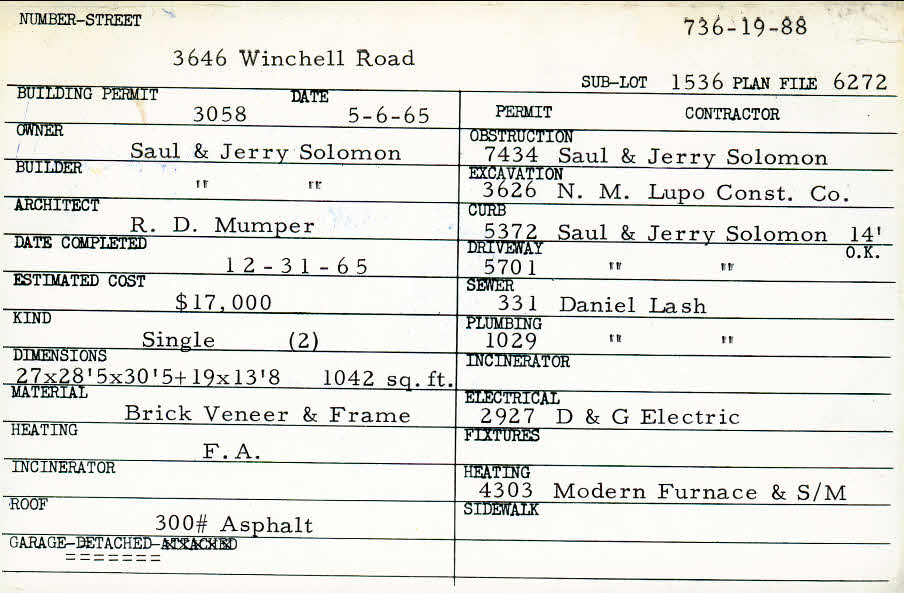 NUMBER-STREET
736-19-88
3646 Winchell Road
SUB-LOT 1536 PLAN FILE 6272
BUILDING PERMIT DATE
3058 5-6-65
OWNER
Saul & Jerry Solomon
BUILDER
" "
ARCHITECT
R. D. Mumper
DATE COMPLETED
12-31-65
ESTIMATED COST
$17,000
KIND
Single (2)
DIMENSIONS
27x28'5x30'5+19x13'8 1042 sq. ft.
MATERIAL
Brick Veneer & Frame
HEATING
F.A.
INCINERATOR
ROOF
300# Asphalt
GARAGE-DETACHED-ATTACHED
=======
PERMIT CONTRACTOR
OBSTRUCTION
7434 Saul & Jerry Solomon
EXCAVATION
3626 N. M. Lupo Const. Co.
CURB
5372 Saul & Jerry Solomon 14'
O.K.
DRIVEWAY
5701 " "
SEWER
331 Daniel Lash
PLUMBING
1029 " "
INCINERATOR
ELECTRICAL
2927 D & G Electric
FIXTURES
HEATING
4303 Modern Furnace & S/M
SIDEWALK